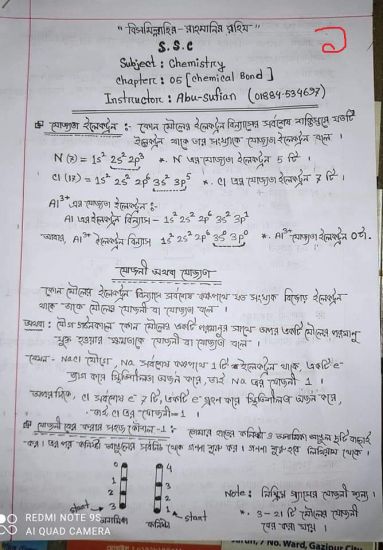 " বিসমিল্লাহির-রাহমানির রাহিম-"
S.S.C
Subject : Chemistry
Chapter : 05 [Chemical Bond]
Instructor : Abu-sufian (01884-534697)
যোজ্যতা ইলেকট্রন :- কোন মৌলের ইলেকট্রন বিন্যাসের সর্বশেষ শক্তিস্তরে যতটি
ইলেকট্রন থাকে তার সংখ্যাকে যোজ্যতা ইলেকট্রন বলে ।
N (7) = 1s² 2s² 2p³ * N এর যোজ্যতা ইলেকট্রন 5 টি ।
Cl (17) = 1s² 2s² 2p⁶ 3s² 3p⁵ * Cl এর যোজ্যতা ইলেকট্রন 7 টি ।
Al³⁺ এর যোজ্যতা ইলেকট্রন :-
Al এর ইলেকট্রন বিন্যাস - 1s² 2s² 2p⁶ 3s² 3p¹
আবার, Al³⁺ ইলেকট্রন বিন্যাস 1s² 2s² 2p⁶ 3s⁰ 3p⁰ * Al³⁺ যোজ্যতা ইলেকট্রন 0টি.
যোজনী অথবা যোজ্যতা
কোন মৌলের ইলেকট্রন বিন্যাসে সর্বশেষ কক্ষপথে যত সংখ্যক বিজোড় ইলেকট্রন
থাকে তাকে মৌলের যোজনী বা যোজ্যতা বলে ।
অথবা : যৌগ গঠনকালে কোন মৌলের একটি পরমাণুর সাথে অপর একটি মৌলের পরমাণু
যুক্ত হওয়ার ক্ষমতাকে যোজনী বা যোজ্যতা বলে ।
যেমন - NaCl যৌগে, Na সর্বশেষ কক্ষপথে 1 টি ইলেকট্রন থাকে, একটি e⁻
ত্যাগ করে স্থিতিশীলতা অর্জন করে, তাই Na এর যোজনী 1 ।
অপরদিকে, Cl সর্বশেষ e⁻ 7 টি, একটি e⁻ গ্রহণ করে স্থিতিশীলতা অর্জন করে,
তাই Cl এর যোজনী = 1 ।
যোজনী বের করার সহজ কৌশল-1 : তোমার হাতের কনিষ্ঠা ও অনামিকা আঙ্গুল দুটি
কর । এর পর কনিষ্ঠা আঙ্গুলের থেকে গণনা শুরু কর । গণনা শুরু হবে থেকে ।
0 4
1 3
2 2
3 1
start start
অনামিকা কনিষ্ঠা
Note : নিষ্ক্রিয় গ্যাসের যোজনী শূন্য ।
* 3 - 21 টি মৌলের যোজনী
বের করা যায় ।
REDMI NOTE 9S
AI QUAD CAMERA
7 No. Ward, Gazipur City